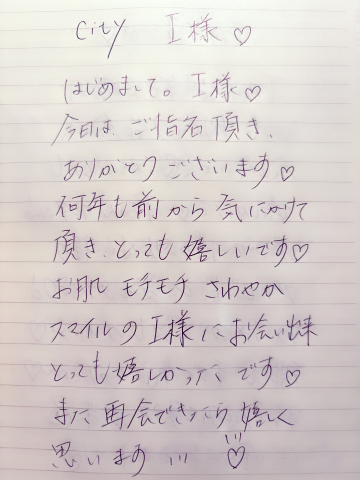 city I様♡
はじめまして。I様♡
今日は、ご指名頂き、
ありがとうございます♡
何年も前から気にかけて
頂き、とっても嬉しいです♡
お肌モチモチさわやか
スマイルのI様にお会い出来
とっても嬉しかったです♡
また再会できたら嬉しく
思います!!!♡